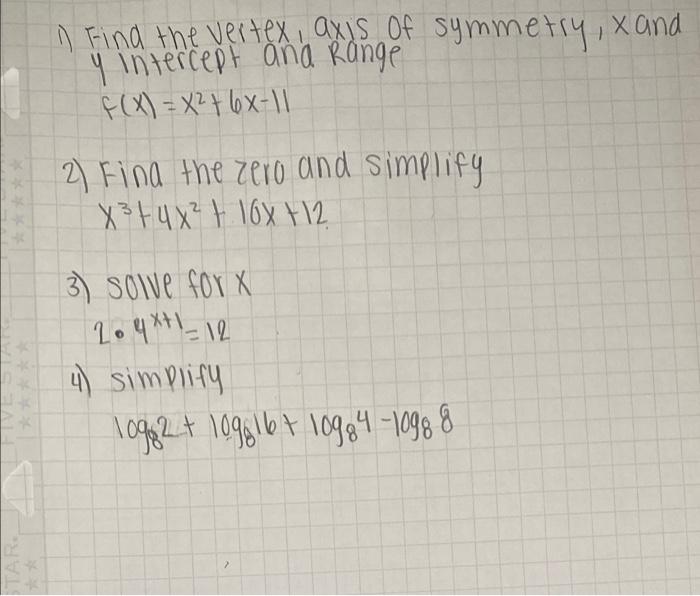 1) Find the vertex, axis of symmetry, x and
y intercept and Range
f(x) = x² + 6x - 11
2) Find the zero and simplify
x³ + 4x² + 16x + 12
3) solve for x
2 • 4^x+1 = 12
4) simplify
log₈2 + log₈16 + log₈4 - log₈8
FIVE STAR.
STAR.